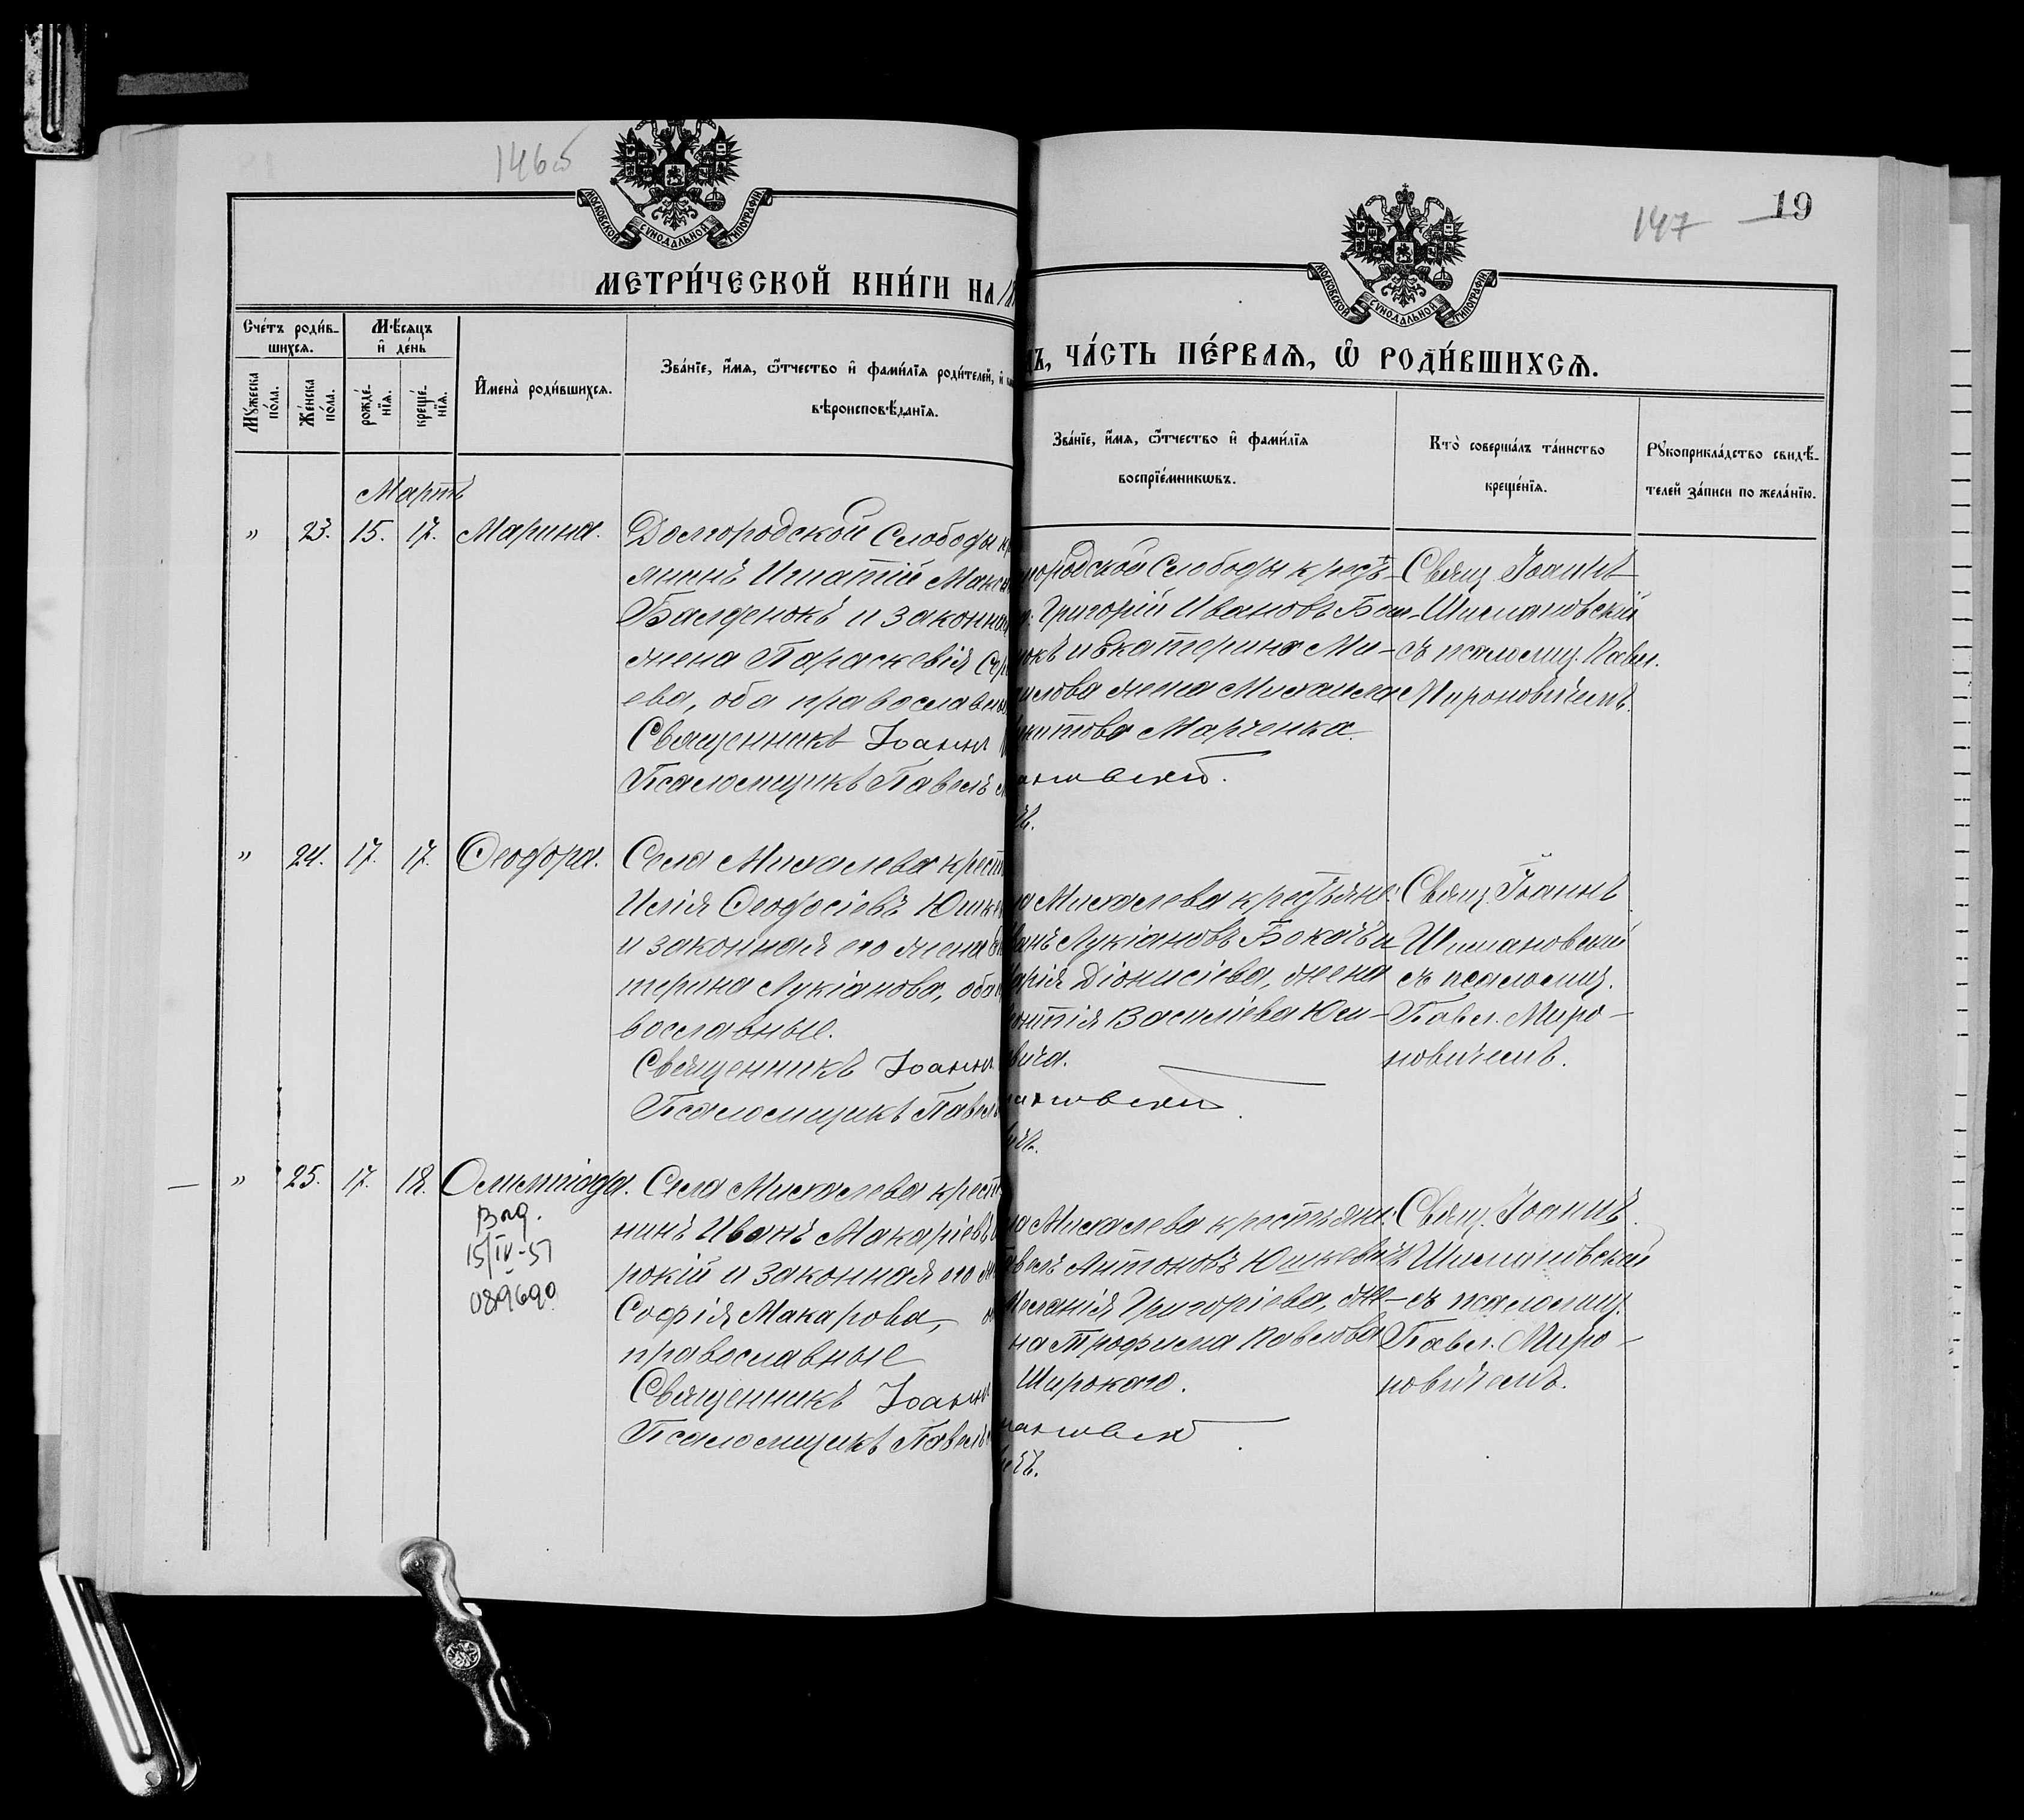 146об
МОСКОВСКОЙ СУНОДАЛЬНОЙ ТИПОГРАФІИ
МЕТРИ́ЧЕСКОЙ КНИ́ГИ НА
Счéтъ роди́вшихся.
Мѣ́сяцъ и҆ де́нь
Мꙋ́жеска по́ла.
Же́нска по́ла.
рожде́нїѧ.
креще́нїѧ.
И҆мена̀ роди́вшихсѧ.
Зва́нїе, и҆́мѧ, ѿтчество и҆ фами́лїѧ роди́телей, и҆
вѣроисповѣ́данїѧ.
Мартъ
" 23. 15. 17. Марина.
Долгородской Слободы
янинъ Игнатій
Балденокъ и законная
жена Параскевія
ева, оба православн
Священникъ Іоанн
Псаломщикъ Павелъ
" 24. 17. 17. Ѳеодора.
Села Михалева крест
Илія Ѳеодосіевъ Юшке
и законная его жена
терина Лукіанова, оба
вославные.
Священникъ Іоанн
Псаломщикъ Павелъ
" 25. 17. 18. Олимпіада.
Выд.
15/IV-57
089690
Села Михалева крест
нинъ Иванъ Макаріевъ
рокій и законная его
Софія Макарова,
православные
Священникъ Іоанн
Псаломщикъ Павелъ
147 19
МОСКОВСКОЙ СУНОДАЛЬНОЙ ТИПОГРАФІИ
ЧА́СТЬ ПЕ́РВАѦ, Ѡ҆ РОДИ́ВШИХСѦ.
Зва́нїе, и҆́мѧ, ѿтчество и҆ фами́лїѧ
воспрїе́мникѡвъ.
Кто̀ соверша́лъ та́инство
креще́нїѧ.
Рꙋкоприкла́дство свидѣ́-
телей за́писи по жела́нїю.
городской Слободы кресть-
Григорій Ивановъ Бал-
окъ и Екатерина Ми-
илова жена Михаила
Марченка.
ановскій.
Свящ. Іоаннъ
Шимановскій
съ псаломщ. Павл.
Мироновичемъ.
Михалева крестьяне:
Лукіановъ Бокачъ и
арія Діонисіева, жена
онтія Василіева Юш-
вича.
ановскій
Свящ. Іоаннъ
Шимановскій
съ псаломщ.
Павл. Миро-
новичемъ.
Михалева крестьяне:
авелъ Антоновъ Юшкевичъ
Меланія Григоріева, же-
на Трофима Павлова
Широкаго.
ановскій
Свящ. Іоаннъ
Шимановскій
съ псаломщ.
Павл. Миро-
новичемъ.